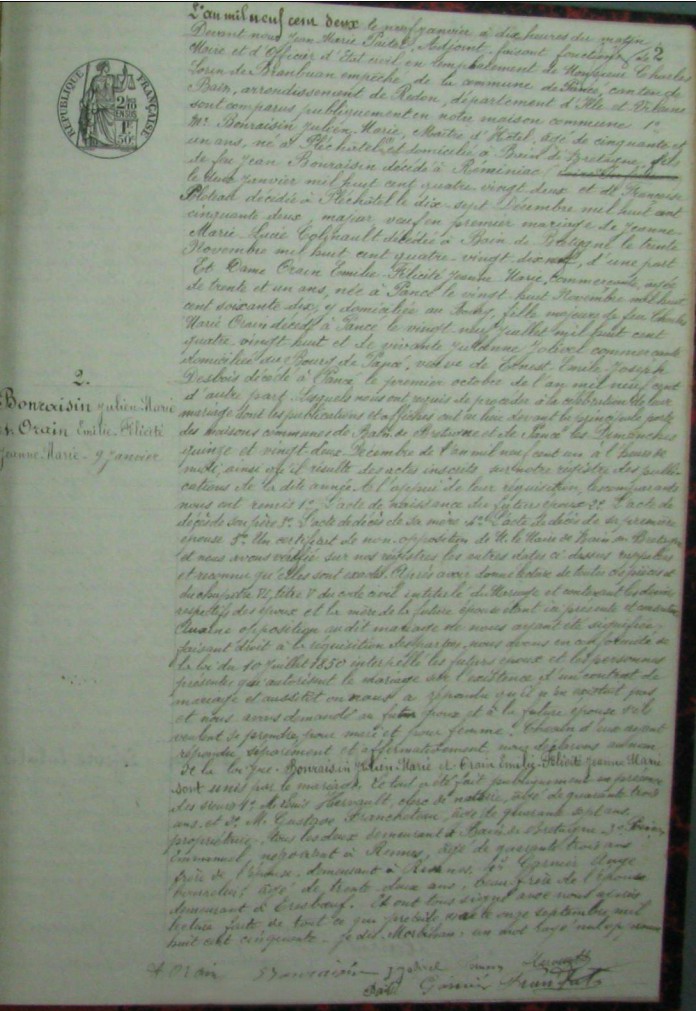 2
L'an mil neuf cent deux le neuf janvier à dix heures du matin
Devant nous Jean Marie Adjoint faisant fonctions de
Maire et d'Officier d'Etat civil en remplacement de Monsieur Charles
Lorin de empêché, de la commune de Pancé, canton de
Bain, arrondissement de Redon, département d'Ille et Vilaine
sont comparus publiquement en notre maison commune 1°
Mr Bonraisin Julien Marie, Maître d'Hotel, âgé de cinquante et
un ans, né à Pléchâtel et domicilié à Bain de Bretagne, fils
de feu Jean Bonraisin décédé à Réminiac
le deux janvier mil huit cent quatre vingt deux et de Françoise
décédée à Pléchâtel le dix sept Décembre mil huit cent
cinquante deux, majeur veuf en premier mariage de Jeanne
Marie Lucie décédée à Bain de Bretagne le trente
Novembre mil huit cent quatre-vingt dix d'une part
Et Dame Orain Emilie Félicité Jeanne Marie, commerçante, âgée
de trente et un ans, née à Pancé le vingt huit Novembre mil huit
cent soixante dix, y domiciliée au Bourg, fille majeure de feu Charles
Marie Orain décédé à Pancé le vingt neuf juillet mil huit cent
quatre vingt huit et de vivante Julienne Jolivel commerçante
domiciliée du Bourg de Pancé, veuve de Ernest Emile Joseph
Desbois décédé à Pancé, le premier octobre de l'an mil neuf cent
d'autre part. Lesquels nous ont requis de procéder à la célébration de leur
mariage dont les publications et affiches ont eu lieu devant la principale porte
des maisons communes de Bain de Bretagne et de Pancé les Dimanches
quinze et vingt deux Décembre de l'an mil neuf cent un à l'heure de
midi, ainsi qu'il résulte des actes inscrits sur notre registre des publi-
cations de la dite année. A l'appui de leur réquisition, les comparants
nous ont remis 1° L'acte de naissance du futur époux 2° L'acte de
décès de son père 3° L'acte de décès de sa mère 4° L'acte de décès de sa première
épouse 5° Un certificat de non-opposition de M. le Maire de Bain de Bretagne
et nous avons vérifié sur nos registres les autres dates ci-dessus
et reconnu qu'elles sont exactes. Après avoir donné lecture de toutes ces pièces et
du chapitre VI, titre V du code civil intitulé du Mariage et concernant les devoirs
respectifs des époux et la mère de la future épouse étant ici présente et consentante
Aucune opposition au dit mariage ne nous ayant été signifiée,
faisant droit à la réquisition des parties, nous avons en conformité de
la loi du 10 juillet 1850 interpellé les futurs époux et les personnes
présentes qui autorisent le mariage sur l'existence d'un contrat de
mariage et aussitôt on nous a répondu qu'il n'en existait pas
et nous avons demandé au futur époux et à la future épouse s'ils
veulent se prendre pour mari et pour femme. Chacun d'eux ayant
répondu séparément et affirmativement, nous déclarons au nom
de la loi que Bonraisin Julien Marie et Orain Emilie Félicité Jeanne Marie
sont unis par le mariage. Le tout a été fait publiquement en présence
des sieurs 1° Hervault, clerc de notaire, âgé de quarante trois
ans, et 2° M. Gustave âgé de quarante sept ans,
propriétaire, tous les deux demeurant à Bain de Bretagne, 3° Orain
Emmanuel, négociant à Rennes, âgé de quarante trois ans
frère de l'épouse, demeurant à Rennes, 4° Garnier Ange
bourrelier, âgé de trente deux ans, beau-frère de l'épouse
demeurant à Ercébœuf. Et ont tous signé avec nous après
lecture faite de tout ce qui précède
huit cent cinquante
2.
Bonraisin Julien Marie
et Orain Emilie Félicité
Jeanne Marie - 9 janvier
RÉPUBLIQUE FRANÇAISE
2/10 EN SUS
1F 50C
E Orain Bonraisin Jolivel Hervault
Garnier